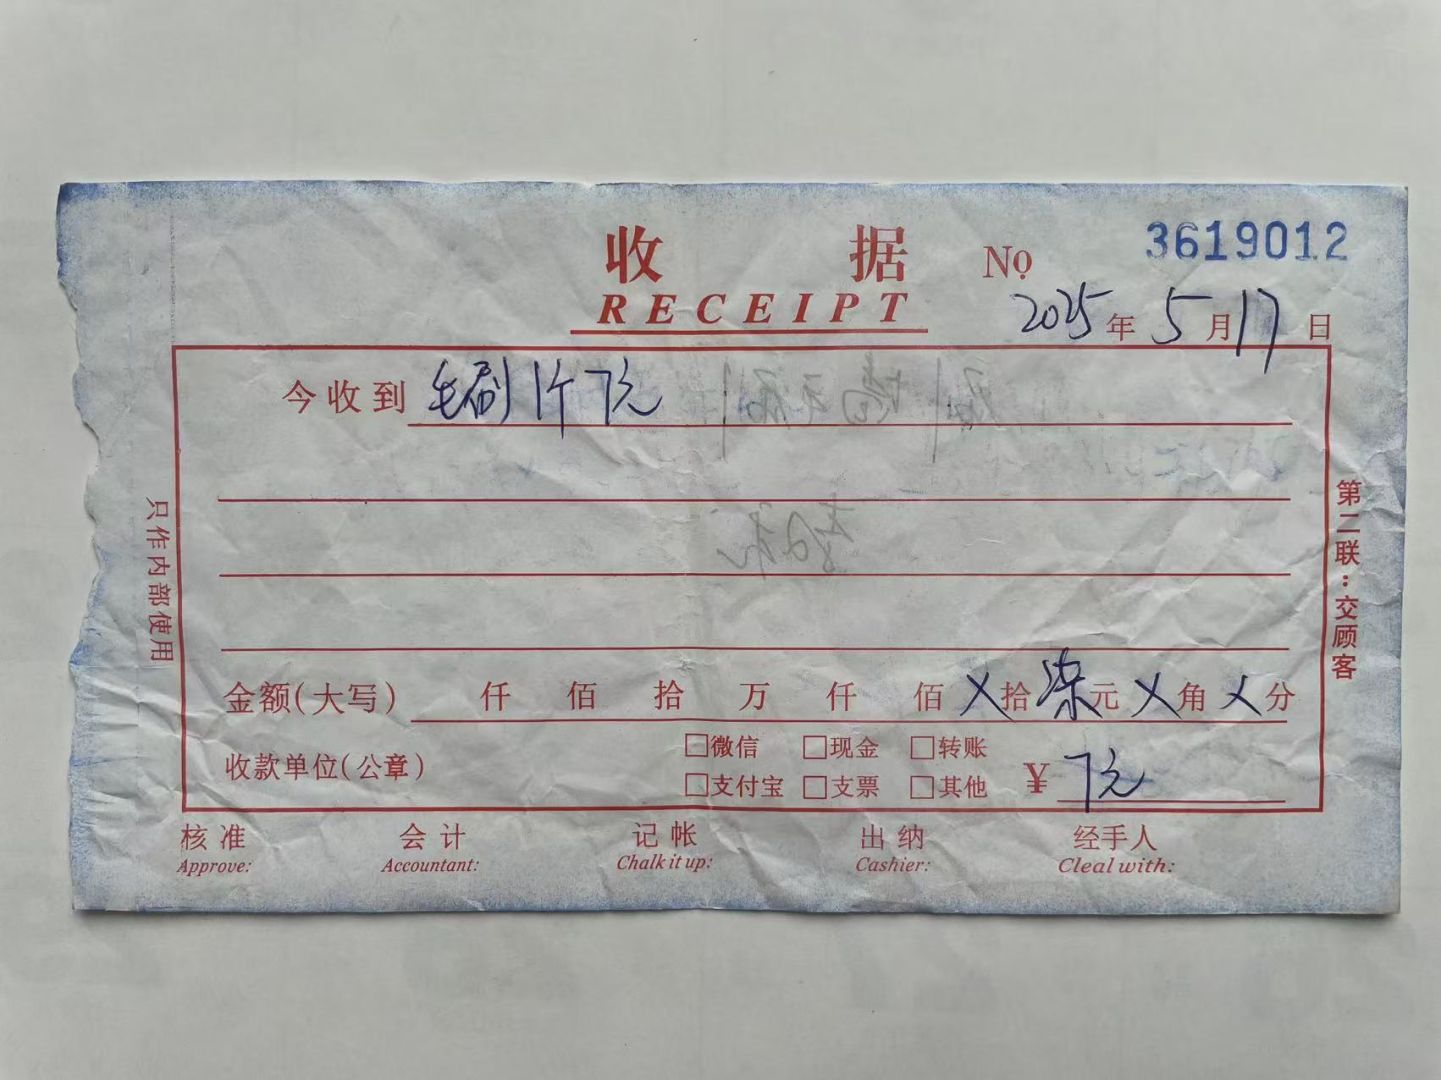 收 据 Nº 3619012
RECEIPT
2025年5月17日
今收到 毛刷1个7元
金额(大写) 仟 佰 拾 万 仟 佰 X拾 柒元 X角 X分
收款单位(公章) □微信 □现金 □转账
□支付宝 □支票 □其他 ¥ 7元
核准 会计 记帐 出纳 经手人
Approve: Accountant: Chalk it up: Cashier: Cleal with:
只作内部使用
第二联：交顾客